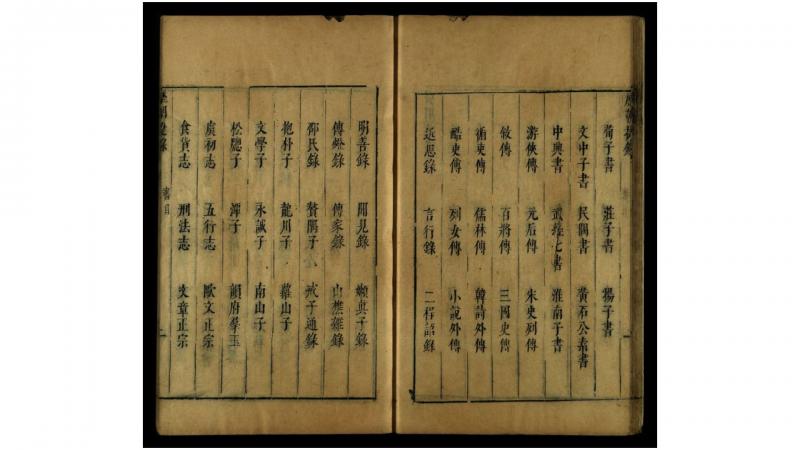 荀子書 莊子書 揚子書
文中子書 民間書 黃石公素書
中興書 武經七書 淮南子書
游俠傳 元后傳 朱史列傳
敘傳 百將傳 三國史傳
循吏傳 儒林傳 韓詩外傳
酷吏傳 列女傳 小說外傳
近思錄 言行錄 二程語錄
明善錄 聞見錄 嬾真子錄
傳燈錄 傳家錄 山樵雜錄
邵氏錄 贅隅子 戒子通錄
抱朴子 龍川子 蘿山子
文學子 永誠子 南山子
松牕子 潭子 韻府羣玉
虞初志 五行志 歐文正宗
食貨志 刑法志 文章正宗
書目 二